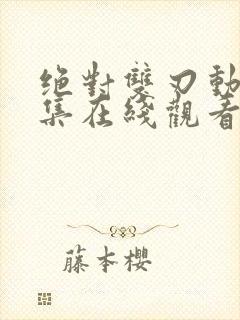 绝對雙刃動
集在綫觀看
藤本櫻